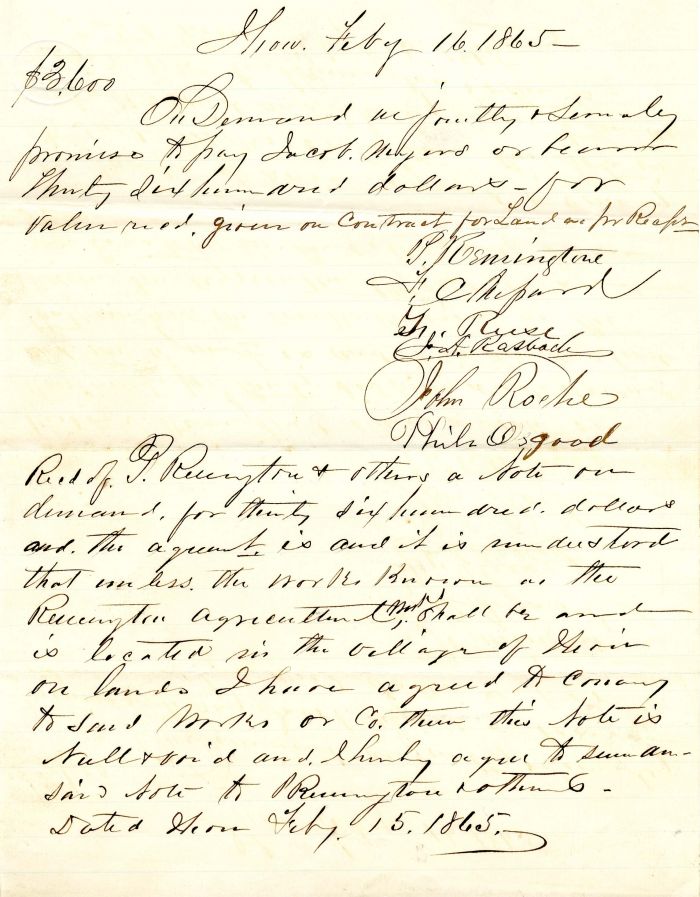 Ilion. Feby 16. 1865 –
$3,600
On Demand we jointly & severaley
promise to pay Jacob. Myers or bearer
thirty six hundred dollars – for
value recd. given on Contract for Land as pr
P. Remington
F. C. Shepard
Th. Reese
J. A. Rasbach
John Roche
Phil. Osgood
Recd of. P. Remington & others a Note on
demand. for thirty six hundred. dollars
and. the agreemt. is and it is understood
that unless. the works Known as the
Remington Agricultural Works Shall be and
is located in the village of Ilion
on lands I have agreed to Convey
to said Works or Co. then this Note is
Null & void and. I hereby agree to
said Note to P Remington & others –
Dated Ilion Feby. 15. 1865. –